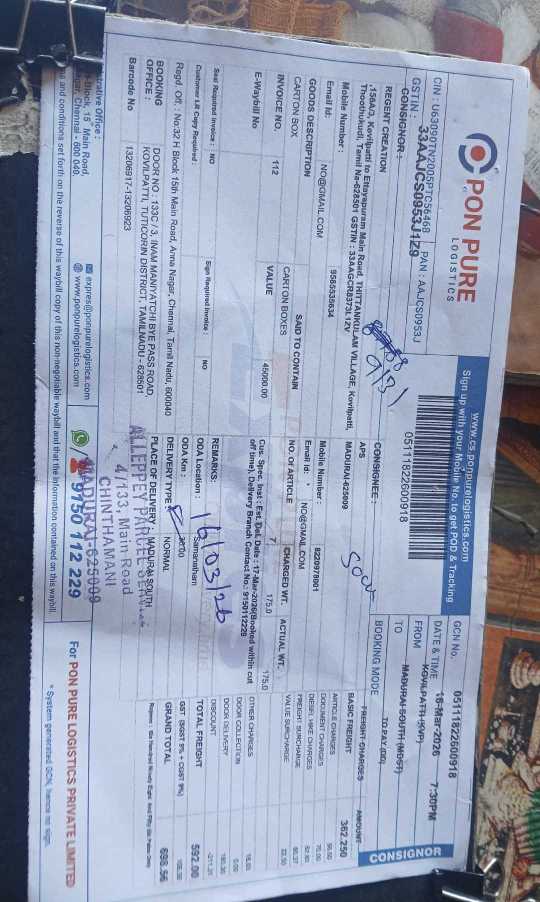 PON PURE
LOGISTICS
www.cs.ponpurelogistics.com
Sign up with your Mobile No. to get POD & Tracking
CIN : U63090TN2005PTC56468
GSTIN : 33AAJCS0953J1Z9
PAN : AAJCS0953J
05111822600918
GCN No. 05111822600918
DATE & TIME 16-Mar-2026 7:30PM
FROM KOVILPATTI (KVP)
TO MADURAI SOUTH (MDST)
BOOKING MODE TO PAY
CONSIGNOR
CONSIGNOR :
REGENT CREATION
,158A/3, Kovilpatti to Ettayapuram Main Road, THITTANKULAM VILLAGE, Kovilpatti,
Thoothukudi, Tamil Na-628501 GSTIN : 33AAGCR8373L1ZV
Mobile Number : 9585535834
Email Id: NO@GMAIL.COM
CONSIGNEE :
APS
MADURAI-625009
Mobile Number : 8220978001
Email Id : NO@GMAIL.COM
GOODS DESCRIPTION
SAID TO CONTAIN
NO. OF ARTICLE
CHARGED WT.
ACTUAL WT.
CARTON BOX
CARTON BOXES
7
175.0
175.0
INVOICE NO. 112
VALUE 45000.00
E-Waybill No
Cus. Spec. Inst : Est. Del. Date : 17-Mar-2026(Booked within cut
off time), Delivery Branch Contact No.: 9150112229
REMARKS:
Seal Required Invoice : NO
Sign Required Invoice : NO
Customer LR Copy Required :
ODA Location :
ODA Km :
DELIVERY TYPE : NORMAL
PLACE OF DELIVERY : MADURAI SOUTH
Regd. Off. : No:32 H Block 15th Main Road, Anna Nagar, Chennai, Tamil Nadu, 600040
BOOKING
OFFICE :
DOOR NO : 133C / 3, INAM MANIYATCHI BYE PASS ROAD,
KOVILPATTI, TUTICORIN DISTRICT, TAMILNADU - 628501
Barcode No 13206917-13206923
FREIGHT CHARGES AMOUNT
BASIC FREIGHT 362.250
ARTICLE CHARGES
DOCUMENT CHARGES
DIESEL HIKE CHARGES
FREIGHT SURCHARGE
VALUE SURCHARGE
OTHER CHARGES
DOOR COLLECTION 0.00
DOOR DELIVERY
DISCOUNT
TOTAL FREIGHT 592.00
GST (SGST 9% + CGST 9%)
GRAND TOTAL 698.56
16/03/26
ALLEPPEY PARCEL SERVICE
4/133, Main Road
CHINTHAMANI
MADURAI-625009
trative Office :
Block, 15 Main Road,
agar, Chennai - 600 040.
expres@ponpurelogistics.com
www.ponpurelogistics.com
9150 112 229
For PON PURE LOGISTICS PRIVATE LIMITED
and conditions set forth on the reverse of this waybill copy of this non-negotiable waybill and that the information contained on this waybill
* System generated GCN, hence no sign.